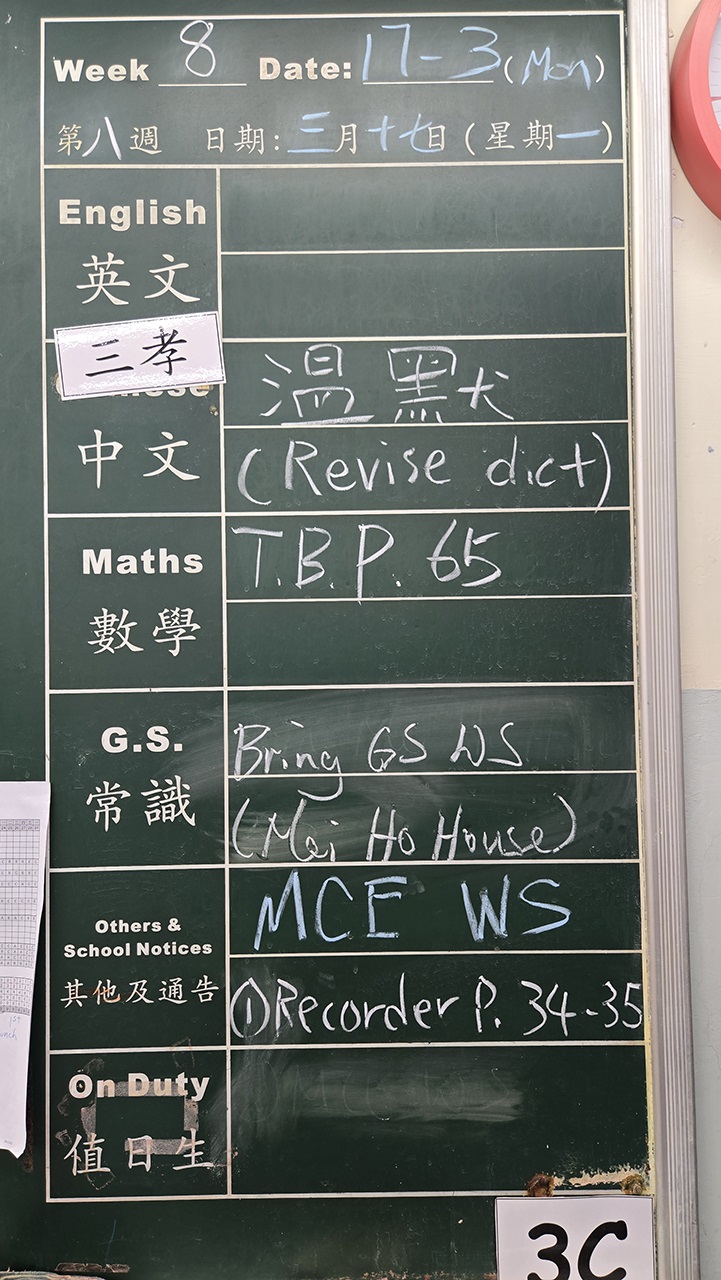 Week 8 Date: 17-3 (Mon)
第八週 日期:三月十七日(星期一)
English
英文
三孝
中文
温默
(Revise dict)
Maths
數學
T.B.P. 65
G.S.
常識
Bring GS WS
(Mei Ho House)
Others &
School Notices
其他及通告
MCE WS
①Recorder P. 34-35
On Duty
值日生
3C